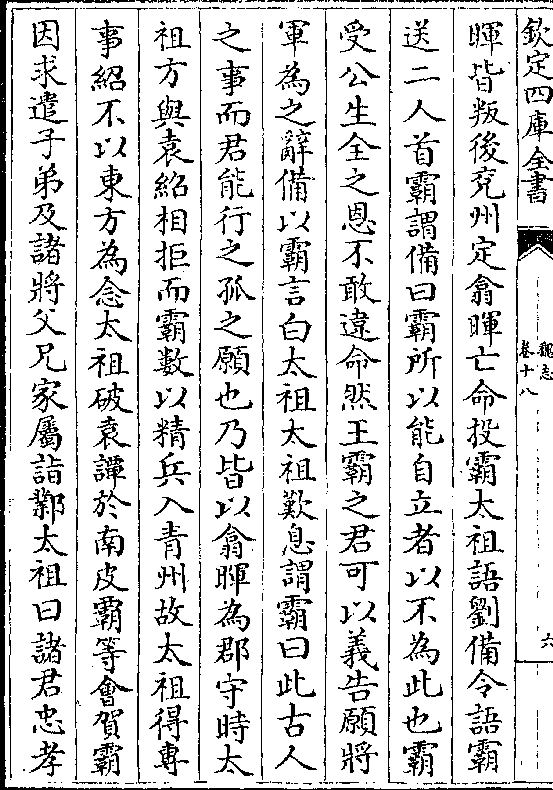 欽定四庫全書
魏志
卷十八
六
暉皆叛後兖州定翕暉亡命投霸太祖語劉備令語霸
送二人首霸謂備曰霸所以能自立者以不為此也霸
受公生全之恩不敢違命然王霸之君可以義告願將
軍為之辭備以霸言白太祖太祖歎息謂霸曰此古人
之事而君能行之孤之願也乃皆以翕暉為郡守時太
祖方與袁紹相拒而霸數以精兵入青州故太祖得專
事紹不以東方為念太祖破袁譚於南皮霸等會賀霸
因求遣子弟及諸將父兄家屬詣鄴太祖曰諸君忠孝